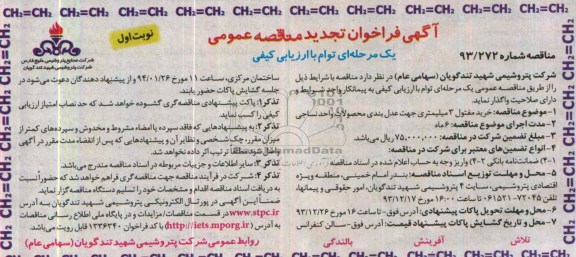 CH₂=CH₂ CH₂=CH₂ CH₂=CH₂ CH₂=CH₂ CH₂=CH₂ CH₂=CH₂ CH₂=CH₂ CH₂=CH₂
آگهی فراخوان تجدید مناقصه عمومی
نوبت اول
یک مرحله‌ای توام با ارزیابی کیفی
مناقصه شماره ۹۳/۲۷۲
شرکت صنایع پتروشیمی خلیج فارس
شرکت پتروشیمی شهید تندگویان
شرکت پتروشیمی شهید تندگویان (سهامی عام) در نظر دارد مناقصه با شرایط ذیل
را از طریق مناقصه عمومی یک مرحله‌ای توام با ارزیابی کیفی به پیمانکار واجد شرایط و
دارای صلاحیت واگذار نماید.
۱- موضوع مناقصه: خرید مفتول ۳ میلیمتری جهت عدل بندی محصولات واحد نساجی
۲- مدت اجرای موضوع مناقصه: ۶ ماه
۳- مبلغ تضمین شرکت در مناقصه: ۷۵,۰۰۰,۰۰۰ ریال می‌باشد.
۴- انواع تضمین‌های معتبر برای شرکت در مناقصه:
۴-۱) ضمانتنامه بانکی ۴-۲) واریز وجه به حساب اعلام شده در اسناد مناقصه
۵- محل و مهلت توزیع اسناد مناقصه: بندر امام خمینی، منطقه ویژه
اقتصادی پتروشیمی، سایت ۴ پتروشیمی شهید تندگویان، امور حقوقی و پیمانها،
تلفن ۷۲۰۴۵-۰۶۱۵۲۱ تا ساعت ۱۶:۰۰ مورخ ۹۳/۱۲/۱۷
۶- محل و مهلت تحویل پاکات پیشنهادی: آدرس فوق - تا ساعت ۱۶ مورخ ۹۳/۱۲/۲۶
۷- محل و تاریخ گشایش پاکات پیشنهاد قیمت: آدرس فوق- سالن کنفرانس
ساختمان مرکزی، ساعت ۱۱ مورخ ۹۴/۰۱/۲۶ و از پیشنهاد دهندگان دعوت می‌شود در
جلسه گشایش پاکات حضور یابند.
تذکر۱: پاکت پیشنهادی مناقصه‌گری گشوده خواهد شد که حد نصاب امتیاز ارزیابی
کیفی را کسب نماید.
تذکر۲: به پیشنهادهایی که فاقد سپرده یا امضاء مشروط و مخدوش و سپرده‌های کمتر از
میزان مقرر، چک شخصی و نظایر آن و پیشنهادهایی که پس از انقضاء مدت مقرر در آگهی
ترتیب اثر داده نخواهد شد.
تذکر۳: سایر اطلاعات و جزییات مربوطه در اسناد مناقصه مندرج می‌باشد.
تذکر۴: شرکت در فرآیند مناقصه جهت مناقصه‌گری فراهم خواهد شد که حضوراً نسبت
به دریافت اسناد مناقصه اقدام و مشخصات خود را تسلیم دستگاه مناقصه گزار نماید.
ضمناً این آگهی در پورتال الکترونیکی پتروشیمی شهید تندگویان به آدرس
www.stpc.ir در قسمت مناقصات/مزایدات و در پایگاه ملی اطلاع رسانی مناقصات
به آدرس (http://iets.mporg.ir) با کد فراخوان ۱۳۳۶۳۴۰ قابل رویت می‌باشد.
روابط عمومی شرکت پتروشیمی شهید تندگویان (سهامی عام)
تلاش آفرینش بالندگی